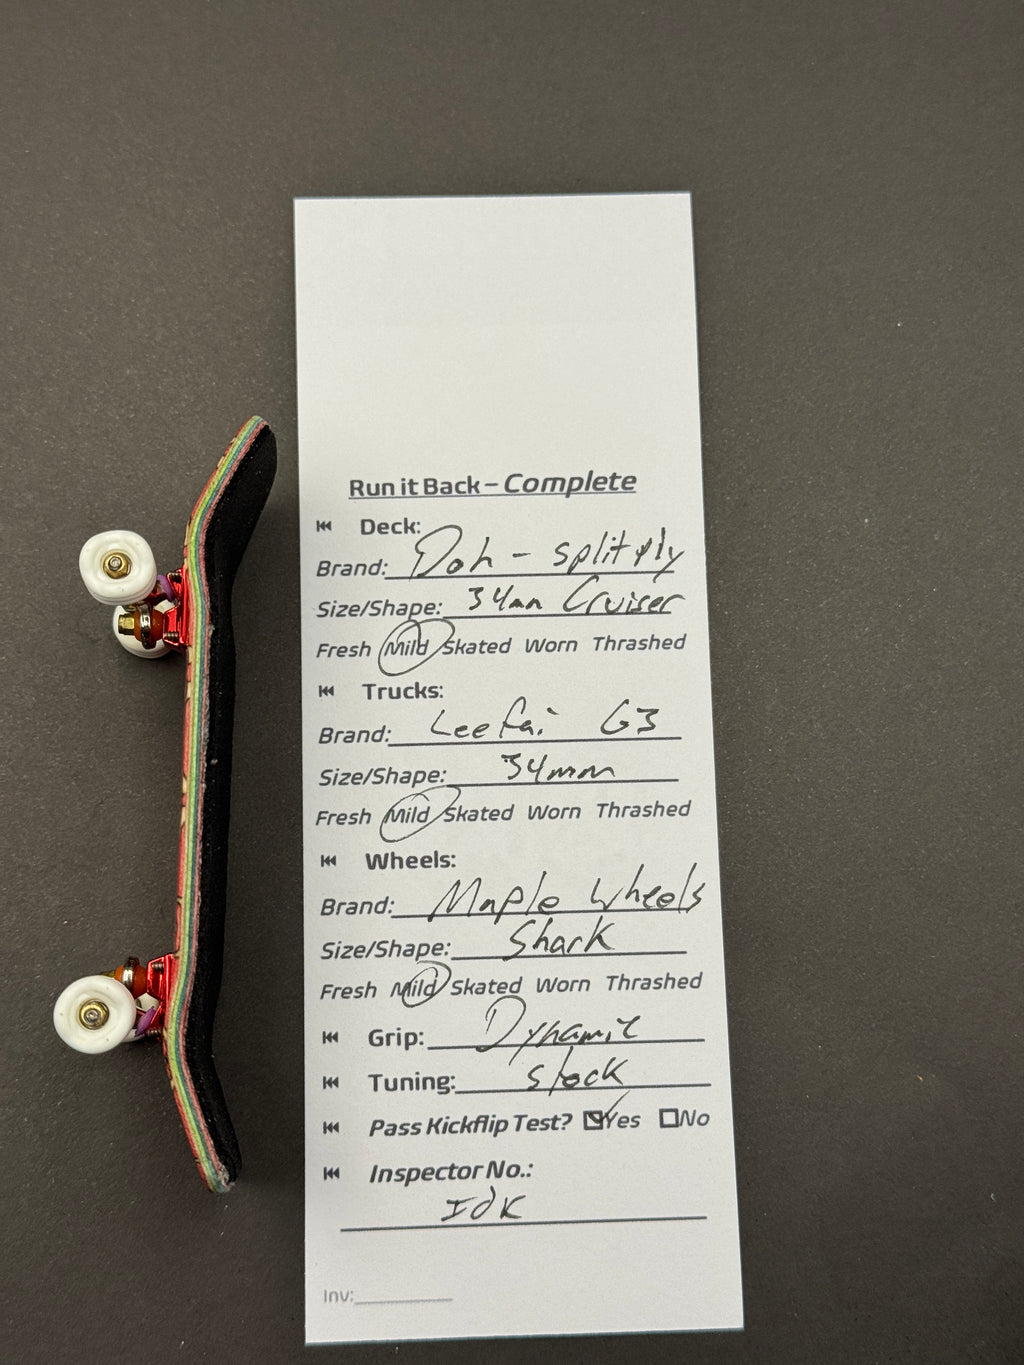 Run it Back – Complete
⏮ Deck:
Brand: Doh - split ply
Size/Shape: 34mm Cruiser
Fresh Mild Skated Worn Thrashed
⏮ Trucks:
Brand: Leefai G3
Size/Shape: 34mm
Fresh Mild Skated Worn Thrashed
⏮ Wheels:
Brand: Maple Wheels
Size/Shape: Shark
Fresh Mild Skated Worn Thrashed
⏮ Grip: Dynamic
⏮ Tuning: Stock
⏮ Pass Kickflip Test? ☑Yes ☐No
⏮ Inspector No.:
Idk
Inv: